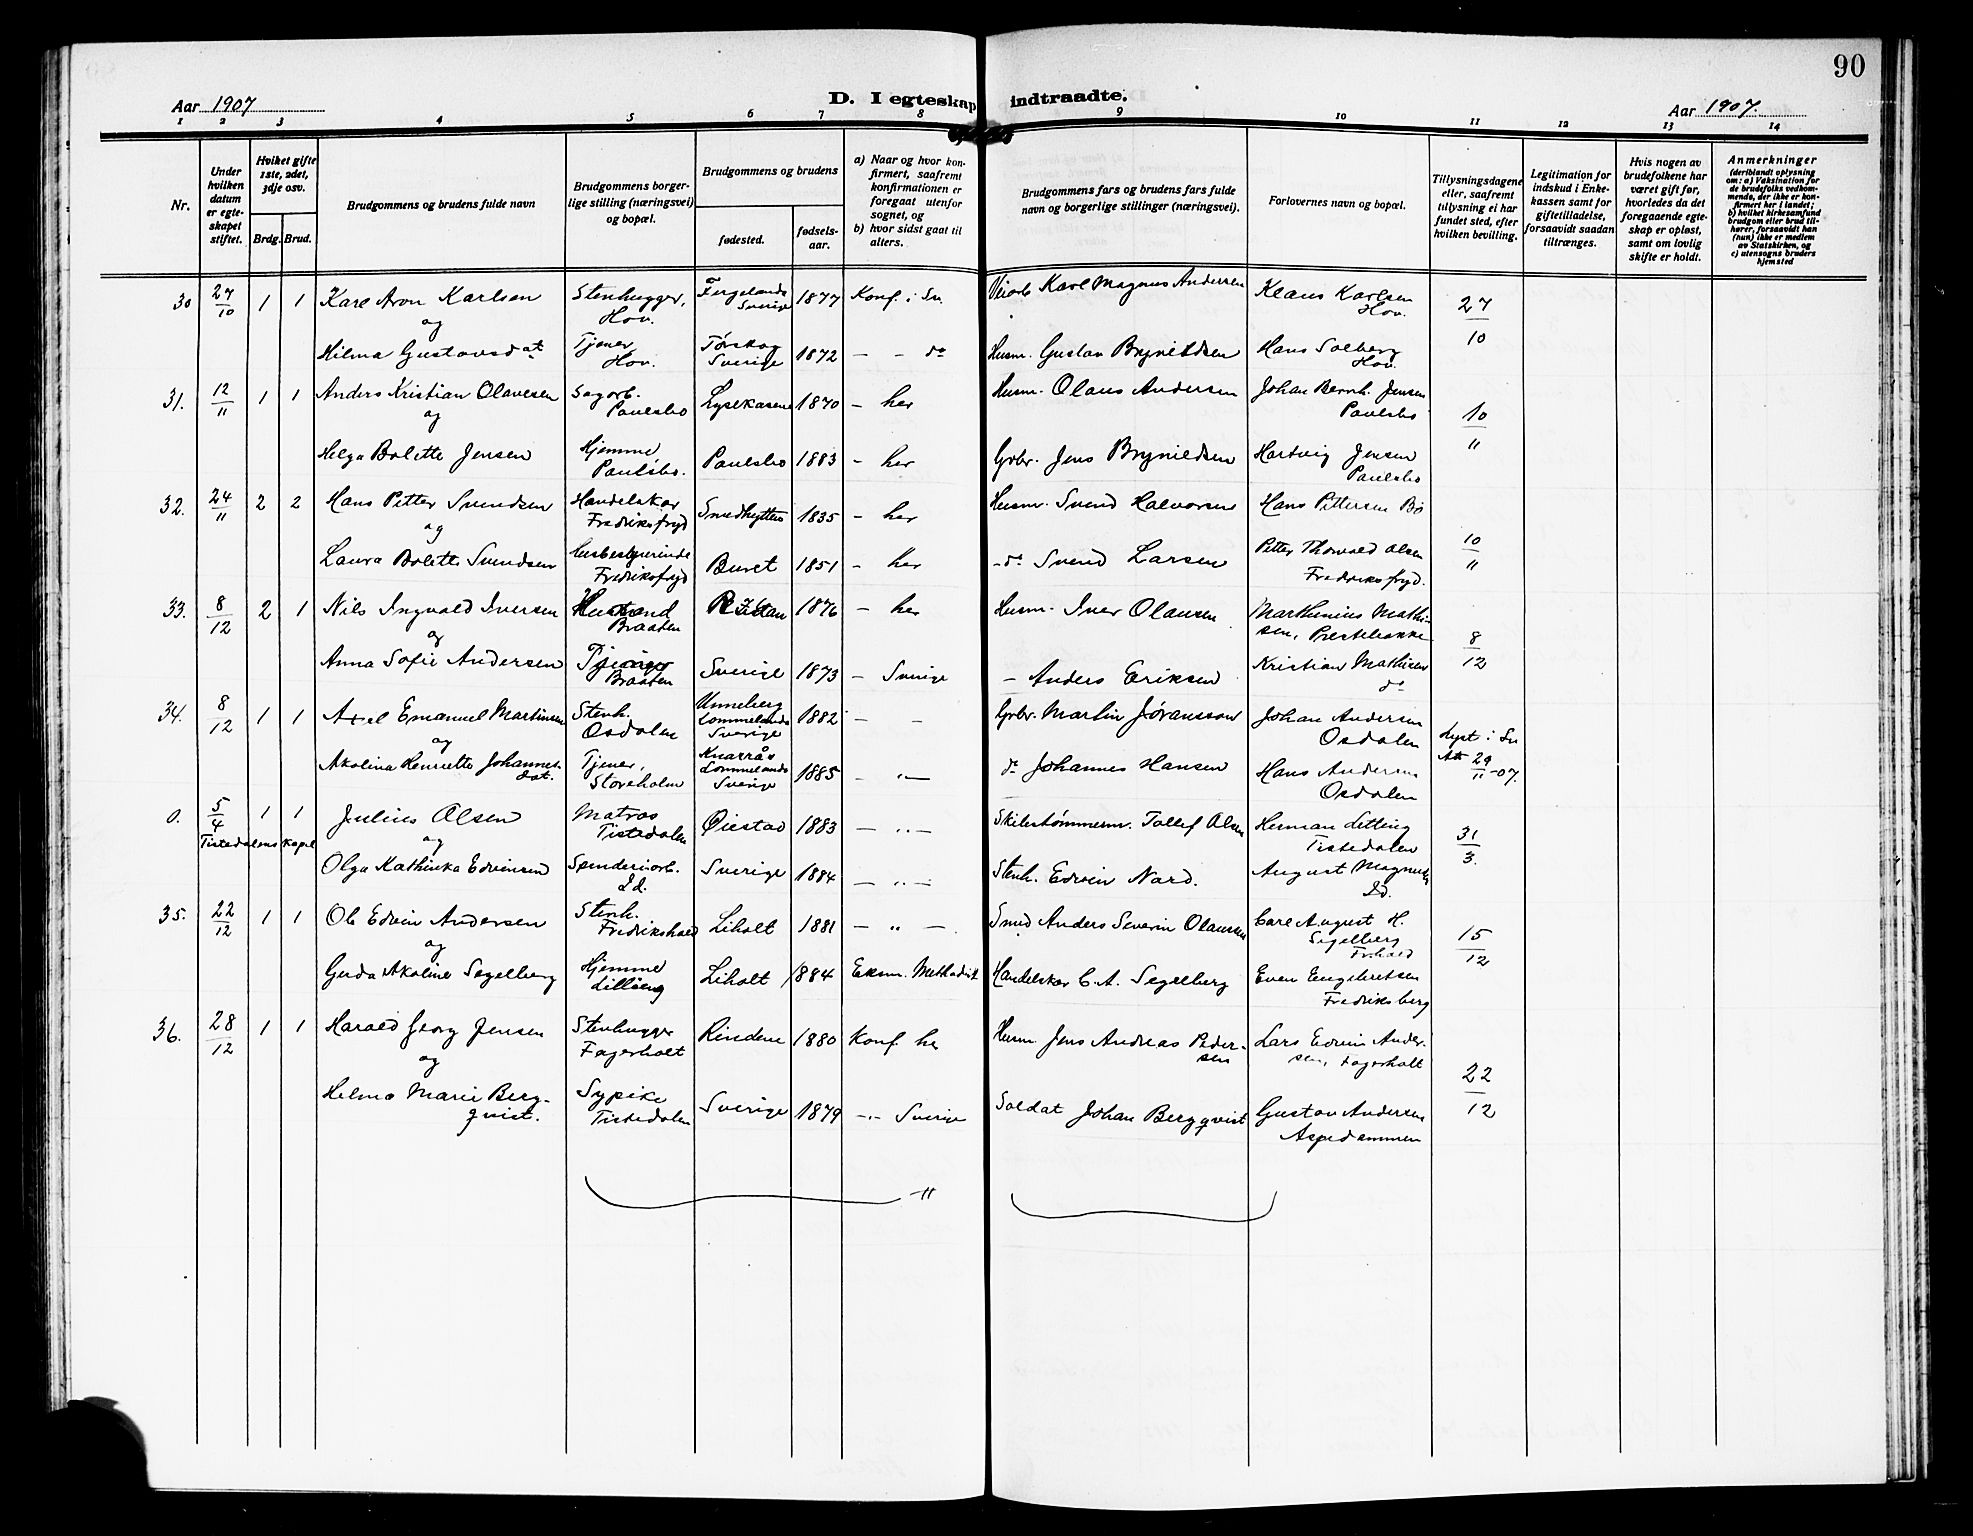 90
Aar 1907
D. I egteskap indtraadte.
Aar 1907.
1 2 3 4 5 6 7 8 9 10 11 12 13 14
Nr.
Under hvilken datum er egteskapet stiftet.
Hvilket gifte 1ste, 2det, 3dje osv.
Brdg. Brud.
Brudgommens og brudens fulde navn
Brudgommens borgerlige stilling (næringsvei) og bopæl.
Brudgommens og brudens
fødested.
fødselsaar.
a) Naar og hvor konfirmert, saafremt konfirmationen er foregaat utenfor sognet, og
b) hvor sidst gaat til alters.
Brudgommens fars og brudens fars fulde navn og borgerlige stillinger (næringsvei).
Forlovernes navn og bopæl.
Tillysningsdagene eller, saafremt tillysning ei har fundet sted, efter hvilken bevilling.
Legitimation for indskud i Enkekassen samt for giftetilladelse, forsaavidt saadan tiltrænges.
Hvis nogen av brudefolkene har været gift før, hvorledes da det foregaaende egteskap er opløst, samt om lovlig skifte er holdt.
Anmerkninger (deriblandt oplysning om: a) Vaksination for de brudefolks vedkommende, der ikke er konfirmert her i landet; b) hvilket kirkesamfund brudgom eller brud tilhører, forsaavidt han (hun) ikke er medlem av Statskirken, og c) utensogns bruders hjemsted
30 27/10 1 1 Karl Aron Karlsen Stenhugger, Hov. Sverige 1877 Konf. i Sv. Karl Magnus Andersen Klaus Karlsen Hov. 27/10
og
Hilma Gustavsdat Tjener Hov. Tørskog Sverige 1872 — — do Husm. Gustav Brynildsen Hans Solberg Hov.
31. 12/11 1 1 Anders Kristian Olavesen Sagarb. Paulsbo Lysekasene 1870 — her Husm. Olaus Andersen Johan Bernh. Jensen Paulsbo 10/11
og
Helga Bolette Jensen Hjemme Paulsbo. Paulsbo 1883 — her Grbr. Jens Brynildsen Hartvig Jensen Paulsbo
32. 24/11 2 2 Hans Petter Svendsen Handelskar Fredriksfryd Smedhytten 1835 — her Husm. Svend Halvorsen Hans Pettersen Bø 10/11
og
Laura Bolette Svendsen Husbestyrerinde Fredriksfryd Buret 1851 — her do Svend Larsen Petter Thorvald Olsen Fredriksfryd.
33. 8/12 2 1 Nils Ingvald Iversen Husmand Braaten 1876 — her Husm. Iver Olausen Marthinius Mathisen, Prestebakke 8/12
og
Anna Sofie Andersen Braaten Sverige 1873 — Sverige — Anders Eriksen Kristian Mathisen do
34. 8/12 1 1 Axel Emanuel Martinsen Stenh. Osdalen Unneberg Lommelands Sverige 1882 — — Grbr. Martin Jøransson Johan Andersen Osdalen lyst i Sv. Att 29/11-07.
og
Akolina Henriette Johannesdat. Tjener, Storeholm Knarrås Lommelands Sverige 1885 — „ — do Johannes Hansen Hans Andersen Osdalen
0. 5/4 1 1 Julius Olsen Matros Tistedalen Øiestad 1883 — „ — Skibstømmerm. Tollef Olsen Herman Tistedalen 31/3.
Tistedalens kapel
og
Olga Kathinka Edvinsen Spinderiarb. Id. Sverige 1884 — „ — Stenh. Edvin Nord. August Magnus Id.
35. 22/12 1 1 Ole Edvin Andersen Stenh. Fredrikshald Liholt 1881 — „ — Smed Anders Severin Olaussen Carl August H. Segelberg Frhald 15/12
og
Gerda Akoline Segelberg Hjemme Lilleeng Liholt 1884 Eksm. Methodist Handelskar C. A. Segelberg Even Engebretsen Fredriksberg
36. 28/12 1 1 Harald Georg Jensen Stenhugger Fagerholt Rindene 1880 Konf. her Husm. Jens Andreas Pedersen Lars Edvin Andersen, Fagerholt 22/12
og
Helma Marie Bergqvist. Sypike Tistedalen Sverige 1879 —„— Sverige Soldat Johan Bergqvist Gustav Andersen Aspedammen